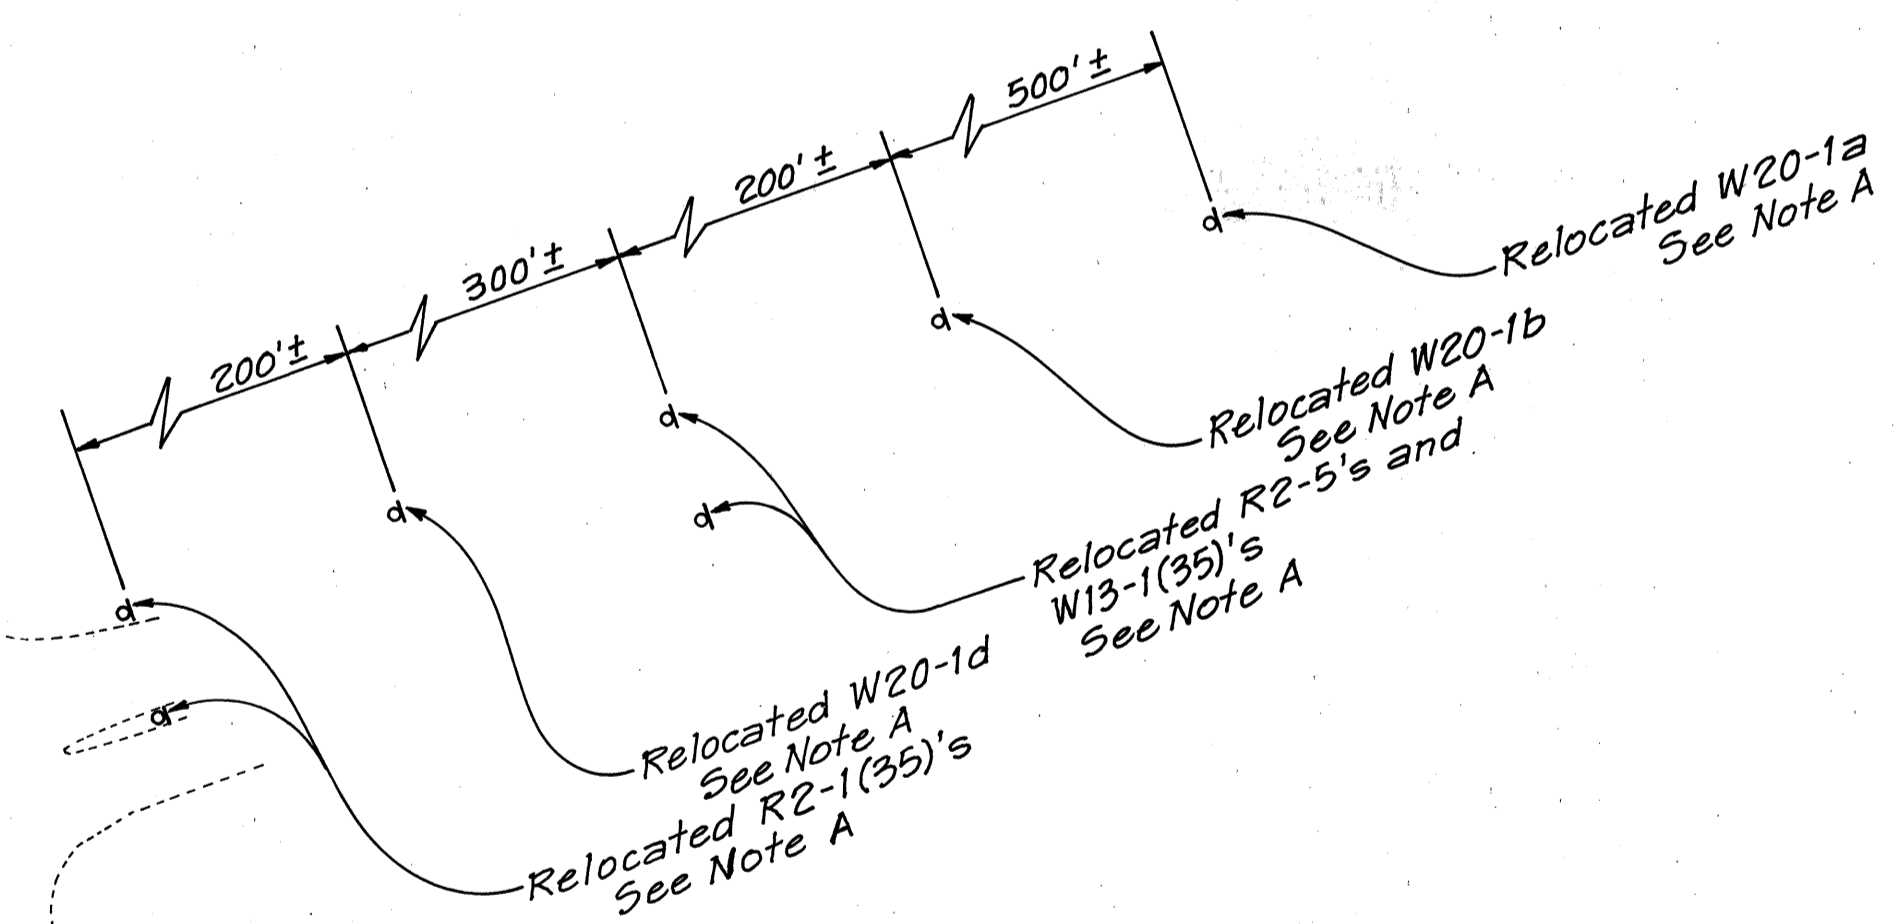 500'±
200'±
300'±
200'±
d
Relocated W20-1a
See Note A
d
Relocated W20-1b
See Note A
d
d
Relocated R2-5's and
W13-1(35)'s
See Note A
d
Relocated W20-1d
See Note A
d
d
Relocated R2-1(35)'s
See Note A